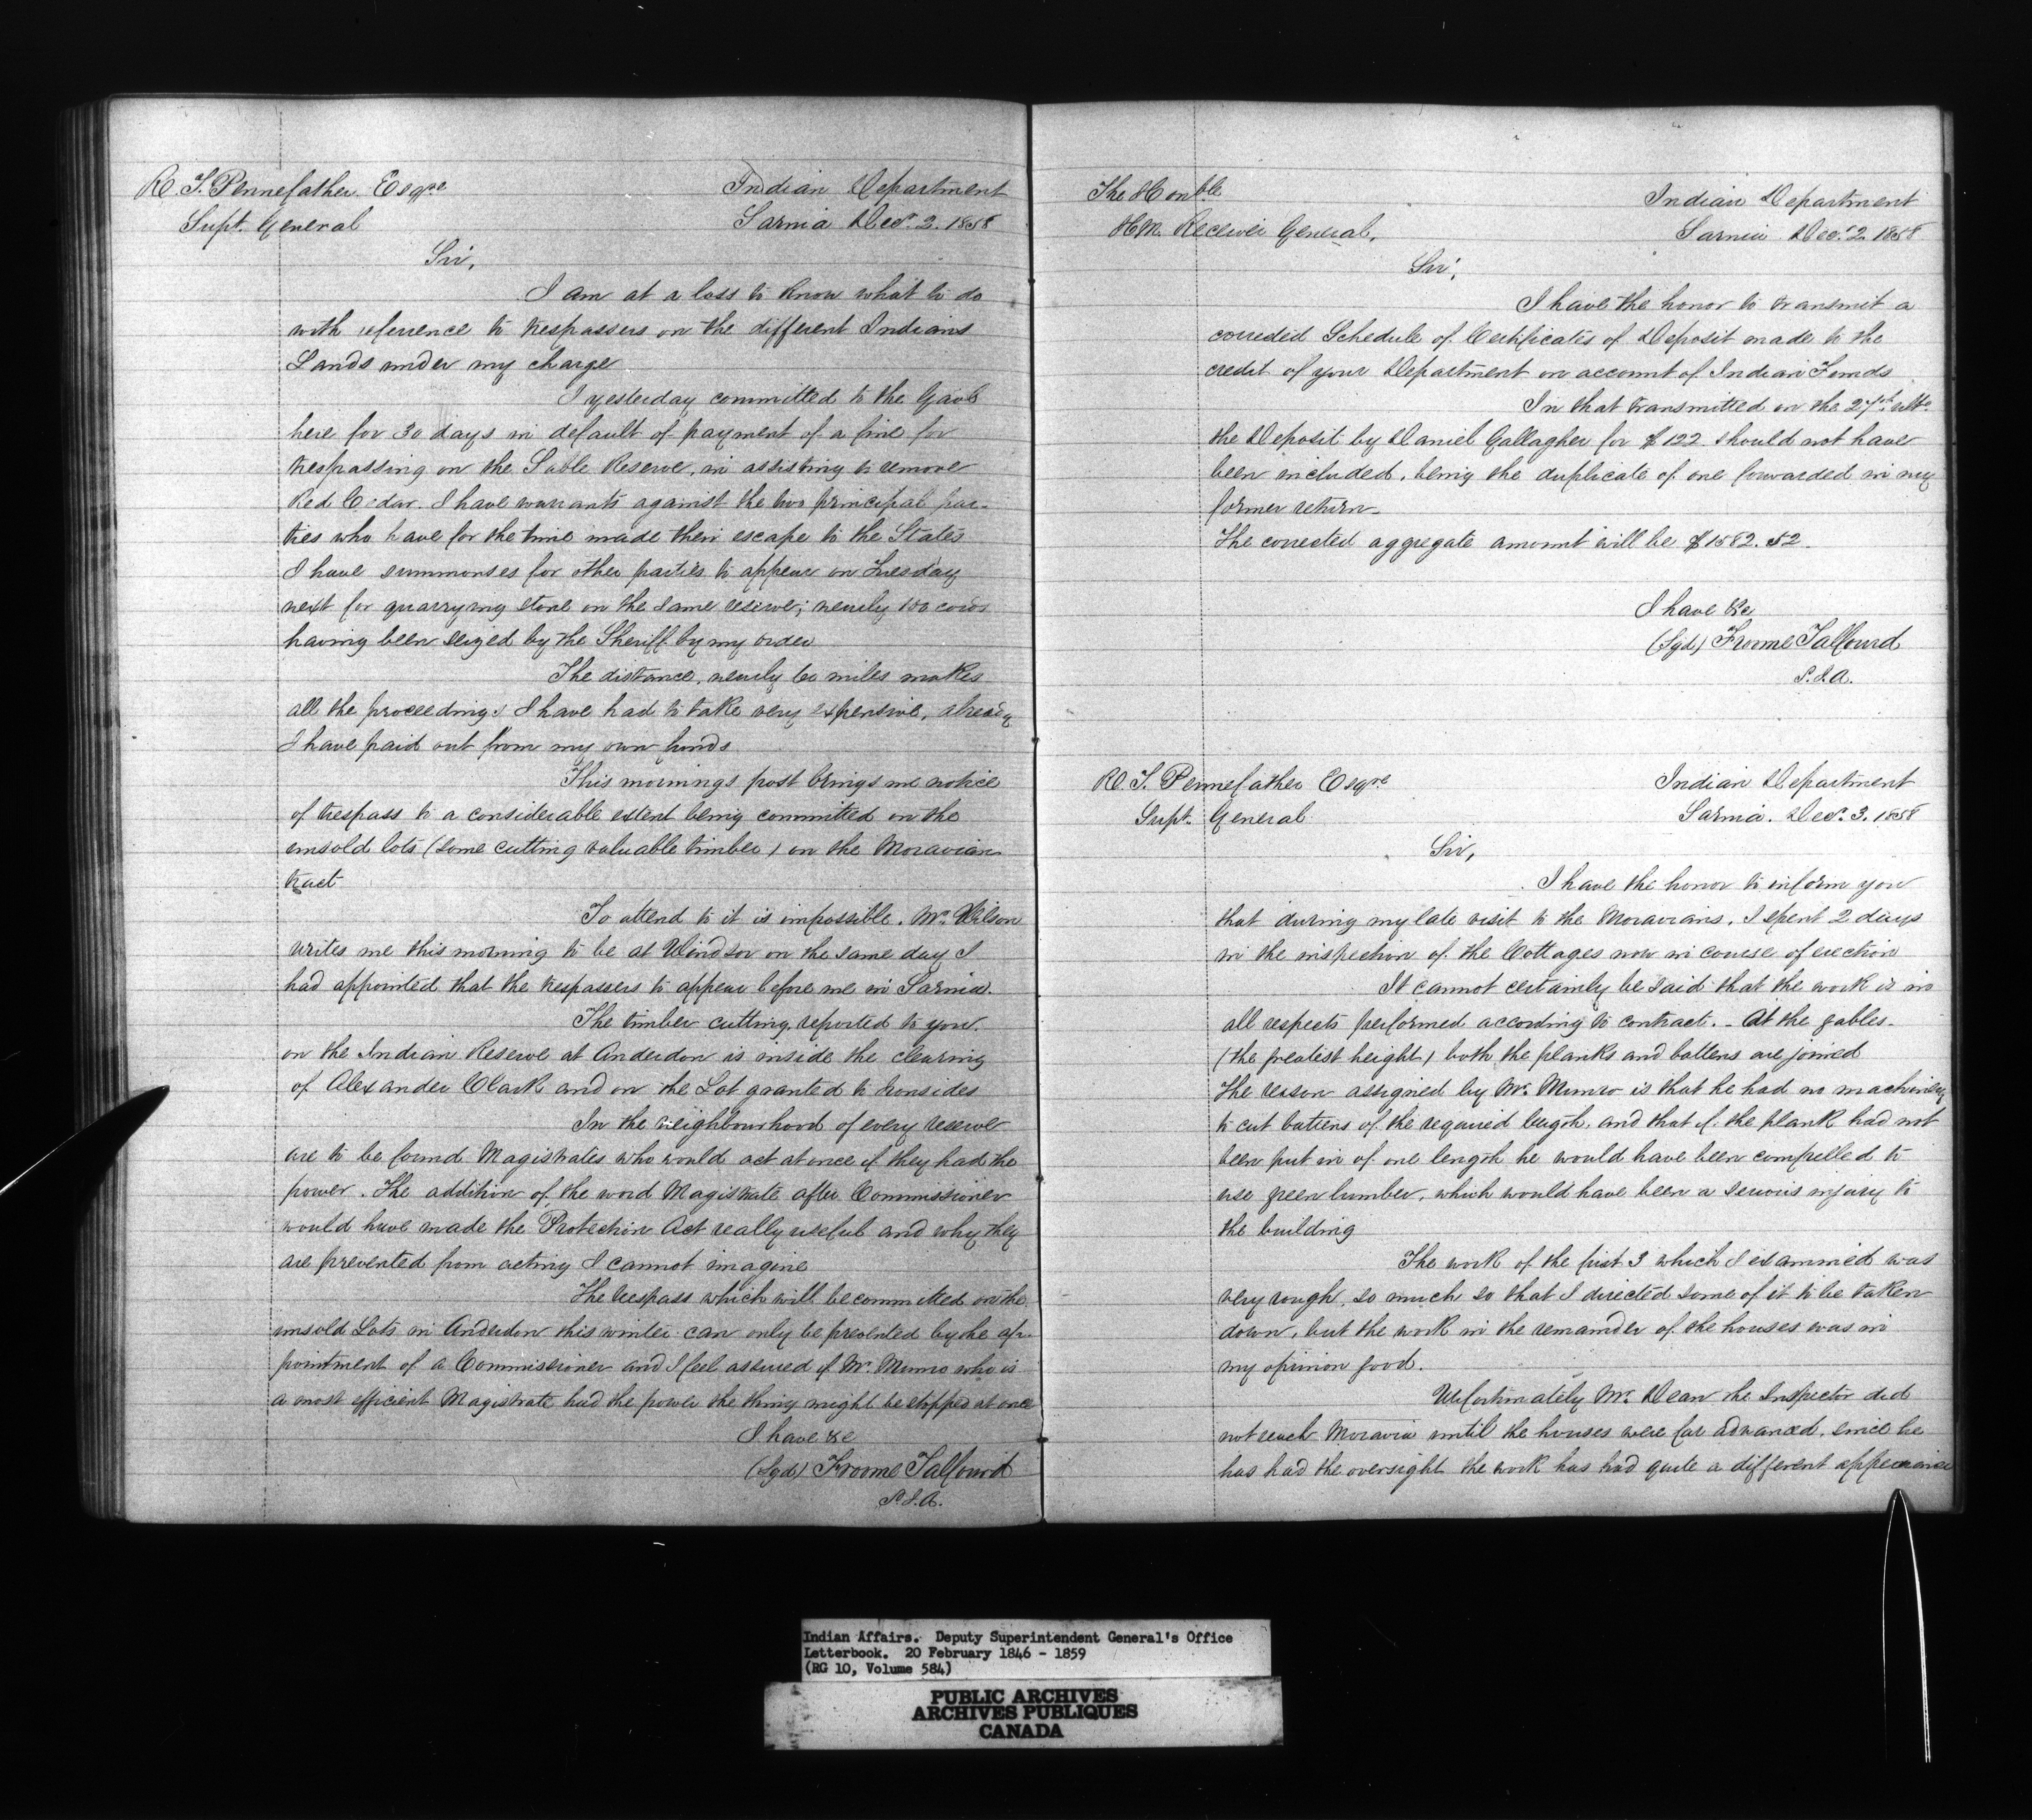 R. T. Pennefather Esqre
Supt. General
Indian Department
Sarnia Decr. 2. 1858
Sir,
I am at a loss to know what to do
with reference to trespassers on the different Indians
Lands under my charge
I yesterday committed to the Gaol
here for 30 days in default of payment of a fine for
trespassing on the Sable Reserve, in assisting to remove
Red Cedar. I have warrants against the two principal par-
ties who have for the time made their escape to the States
I have summonses for other parties to appear on Tuesday
next for quarrying stone on the same reserve; nearly 100 cords
having been seized by the Sheriff by my order
The distance, nearly 60 miles makes
all the proceedings I have had to take very expensive, already
I have paid out from my own funds
This mornings post brings me notice
of trespass to a considerable extent being committed on the
unsold lots (some cutting valuable timber) on the Moravian
tract
To attend to it is impossible. Mr. Wilson
writes me this morning to be at Windsor on the same day I
had appointed that the trespassers to appear before me in Sarnia.
The timber cutting, reported to you,
on the Indian Reserve at Anderdon is inside the clearing
of Alexander Clark and on the Lot granted to Ironsides
In the neighbourhood of every reserve
are to be found Magistrates who would act at once if they had the
power. The addition of the word Magistrate after Commissioner
would have made the Protection Act really useful and why they
are prevented from acting I cannot imagine
The trespass which will be committed on the
unsold Lots in Anderdon this winter can only be prevented by the ap-
pointment of a Commissioner and I feel assured if Mr. Munro who is
a most efficient Magistrate had the power the thing might be stopped at once
I have &c
(Sgd) Froome Talfourd
S.I.A.
The Honble
H.M. Receiver General,
Indian Department
Sarnia Decr. 2 1858
Sir,
I have the honor to transmit a
corrected Schedule of Certificates of Deposit made to the
credit of your Department on account of Indian Funds
In that transmitted on the 27th ulto
the Deposit by Daniel Gallagher for $122 should not have
been included, being the duplicate of one forwarded in my
former return.
The corrected aggregate amount will be $1582.52.
I have &c
(Sgd) Froome Talfourd
S.I.A.
R. T. Pennefather Esqre
Supt. General
Indian Department
Sarnia. Decr. 3. 1858
Sir,
I have the honor to inform you
that during my late visit to the Moravians, I spent 2 days
in the inspection of the Cottages now in course of erection
It cannot certainly be said that the work is in
all respects performed according to contract. - At the gables.
(the greatest height) both the planks and battens are joined
The reason assigned by Mr. Munro is that he had no machinery
to cut battens of the required length, and that if the plank had not
been put in of one length he would have been compelled to
use green lumber, which would have been a serious injury to
the building
The work of the first 3 which I examined was
very rough, so much so that I directed some of it to be taken
down, but the work in the remainder of the houses was in
my opinion good.
Unfortunately Mr. Dean the Inspector did
not reach Moravia until the houses were far advanced, since he
has had the oversight the work has had quite a different appearance
Indian Affairs. Deputy Superintendent General's Office
Letterbook. 20 February 1846 - 1859
(RG 10, Volume 584)
PUBLIC ARCHIVES
ARCHIVES PUBLIQUES
CANADA